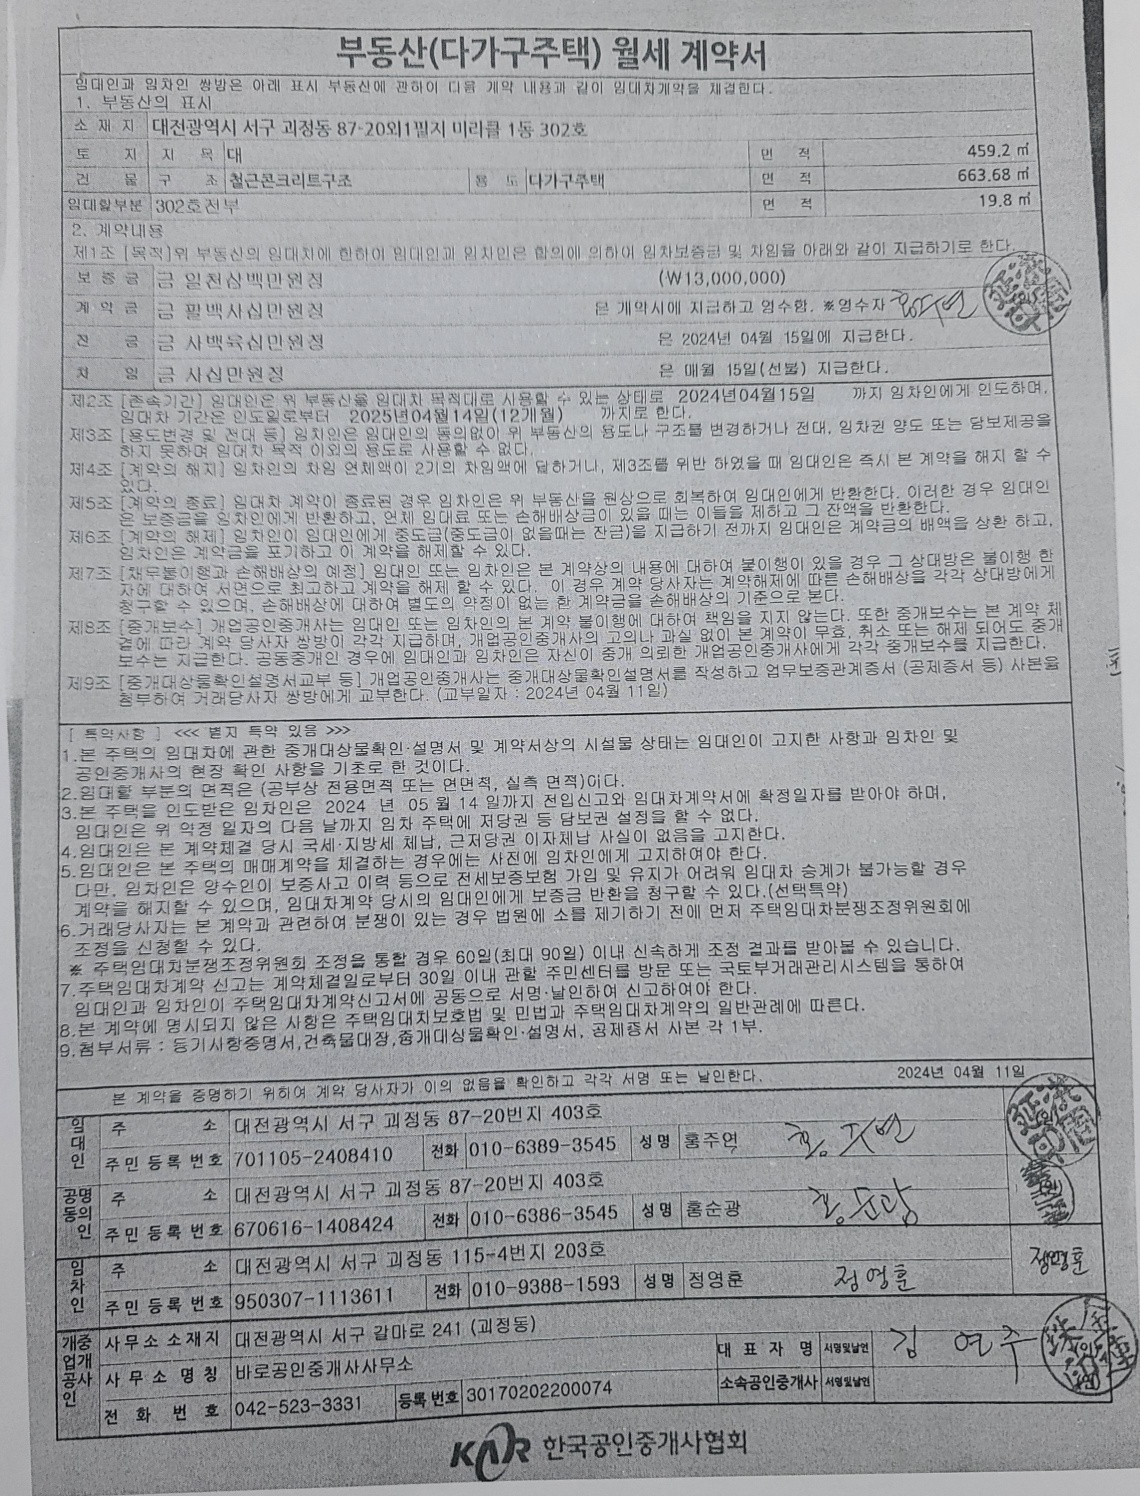 부동산(다가구주택) 월세 계약서
임대인과 임차인 쌍방은 아래 표시 부동산에 관하여 다음 계약 내용과 같이 임대차계약을 체결한다.
1. 부동산의 표시
소 재 지 대전광역시 서구 괴정동 87-20외1필지 미라클 1동 302호
토 지 지 목 대 면 적 459.2 ㎡
건 물 구 조 철근콘크리트구조 용 도 다가구주택 면 적 663.68 ㎡
임대할부분 302호전부 면 적 19.8 ㎡
2. 계약내용
제1조 [목적]위 부동산의 임대차에 한하여 임대인과 임차인은 합의에 의하여 임차보증금 및 차임을 아래와 같이 지급하기로 한다.
보 증 금 금 일천삼백만원정 (₩13,000,000)
계 약 금 금 팔백사십만원정 은 계약시에 지급하고 영수함. ※영수자 홍주연
잔 금 금 사백육십만원정 은 2024년 04월 15일에 지급한다.
차 임 금 사십만원정 은 매월 15일(선불) 지급한다.
제2조 [존속기간] 임대인은 위 부동산을 임대차 목적대로 사용할 수 있는 상태로 2024년04월15일 까지 임차인에게 인도하며,
임대차 기간은 인도일로부터 2025년04월14일(12개월) 까지로 한다.
제3조 [용도변경 및 전대 등] 임차인은 임대인의 동의없이 위 부동산의 용도나 구조를 변경하거나 전대, 임차권 양도 또는 담보제공을
하지 못하며 임대차 목적 이외의 용도로 사용할 수 없다.
제4조 [계약의 해지] 임차인의 차임 연체액이 2기의 차임액에 달하거나, 제3조를 위반 하였을 때 임대인은 즉시 본 계약을 해지 할 수
있다.
제5조 [계약의 종료] 임대차 계약이 종료된 경우 임차인은 위 부동산을 원상으로 회복하여 임대인에게 반환한다. 이러한 경우 임대인
은 보증금을 임차인에게 반환하고, 연체 임대료 또는 손해배상금이 있을 때는 이들을 제하고 그 잔액을 반환한다.
제6조 [계약의 해제] 임차인이 임대인에게 중도금(중도금이 없을때는 잔금)을 지급하기 전까지 임대인은 계약금의 배액을 상환 하고,
임차인은 계약금을 포기하고 이 계약을 해제할 수 있다.
제7조 [채무불이행과 손해배상의 예정] 임대인 또는 임차인은 본 계약상의 내용에 대하여 불이행이 있을 경우 그 상대방은 불이행 한
자에 대하여 서면으로 최고하고 계약을 해제 할 수 있다. 이 경우 계약 당사자는 계약해제에 따른 손해배상을 각각 상대방에게
청구할 수 있으며, 손해배상에 대하여 별도의 약정이 없는 한 계약금을 손해배상의 기준으로 본다.
제8조 [중개보수] 개업공인중개사는 임대인 또는 임차인의 본 계약 불이행에 대하여 책임을 지지 않는다. 또한 중개보수는 본 계약 체
결에 따라 계약 당사자 쌍방이 각각 지급하며, 개업공인중개사의 고의나 과실 없이 본 계약이 무효, 취소 또는 해제 되어도 중개
보수는 지급한다. 공동중개인 경우에 임대인과 임차인은 자신이 중개 의뢰한 개업공인중개사에게 각각 중개보수를 지급한다.
제9조 [중개대상물확인설명서교부 등] 개업공인중개사는 중개대상물확인설명서를 작성하고 업무보증관계증서 (공제증서 등) 사본을
첨부하여 거래당사자 쌍방에게 교부한다. (교부일자 : 2024년 04월 11일)
[ 특약사항 ] <<< 별지 특약 있음 >>>
1.본 주택의 임대차에 관한 중개대상물확인·설명서 및 계약서상의 시설물 상태는 임대인이 고지한 사항과 임차인 및
공인중개사의 현장 확인 사항을 기초로 한 것이다.
2.임대할 부분의 면적은 (공부상 전용면적 또는 연면적, 실측 면적)이다.
3.본 주택을 인도받은 임차인은 2024 년 05 월 14 일까지 전입신고와 임대차계약서에 확정일자를 받아야 하며,
임대인은 위 약정 일자의 다음 날까지 임차 주택에 저당권 등 담보권 설정을 할 수 없다.
4.임대인은 본 계약체결 당시 국세·지방세 체납, 근저당권 이자체납 사실이 없음을 고지한다.
5.임대인은 본 주택의 매매계약을 체결하는 경우에는 사전에 임차인에게 고지하여야 한다.
다만, 임차인은 양수인이 보증사고 이력 등으로 전세보증보험 가입 및 유지가 어려워 임대차 승계가 불가능할 경우
계약을 해지할 수 있으며, 임대차계약 당시의 임대인에게 보증금 반환을 청구할 수 있다.(선택특약)
6.거래당사자는 본 계약과 관련하여 분쟁이 있는 경우 법원에 소를 제기하기 전에 먼저 주택임대차분쟁조정위원회에
조정을 신청할 수 있다.
※ 주택임대차분쟁조정위원회 조정을 통할 경우 60일(최대 90일) 이내 신속하게 조정 결과를 받아볼 수 있습니다.
7.주택임대차계약 신고는 계약체결일로부터 30일 이내 관할 주민센터를 방문 또는 국토부거래관리시스템을 통하여
임대인과 임차인이 주택임대차계약신고서에 공동으로 서명·날인하여 신고하여야 한다.
8.본 계약에 명시되지 않은 사항은 주택임대차보호법 및 민법과 주택임대차계약의 일반관례에 따른다.
9.첨부서류 : 등기사항증명서,건축물대장,중개대상물확인·설명서, 공제증서 사본 각 1부.
본 계약을 증명하기 위하여 계약 당사자가 이의 없음을 확인하고 각각 서명 또는 날인한다. 2024년 04월 11일
임대인 주 소 대전광역시 서구 괴정동 87-20번지 403호
주민 등록 번호 701105-2408410 전화 010-6389-3545 성 명 홍주연 홍주연
공동명의인 주 소 대전광역시 서구 괴정동 87-20번지 403호
주민 등록 번호 670616-1408424 전화 010-6386-3545 성 명 홍순광 홍순광
임차인 주 소 대전광역시 서구 괴정동 115-4번지 203호
주민 등록 번호 950307-1113611 전화 010-9388-1593 성 명 정영훈 정영훈 정영훈
개업공인중개사 사무소 소재지 대전광역시 서구 갈마로 241 (괴정동)
사 무 소 명 칭 바로공인중개사사무소 대 표 자 명 서명및날인 김연주
전 화 번 호 042-523-3331 등록 번호 30170202200074 소속공인중개사 서명및날인
KAR 한국공인중개사협회